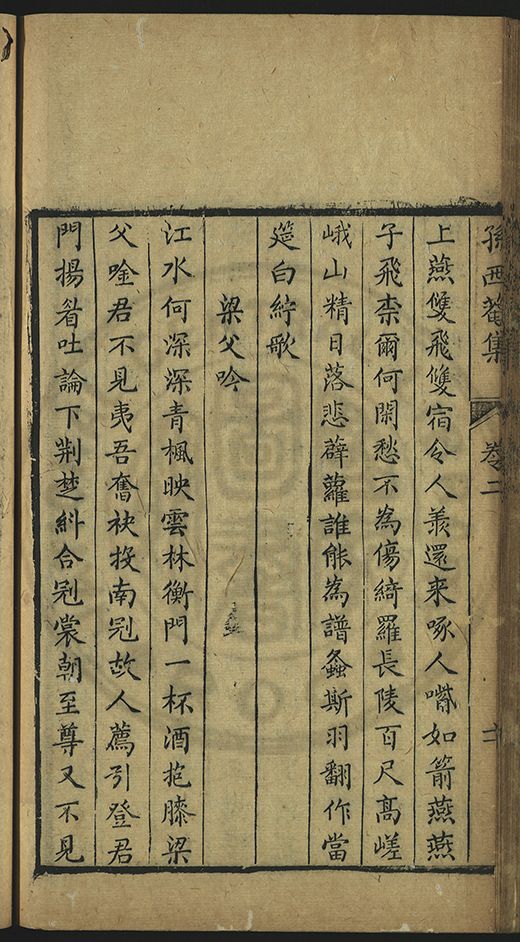 孫西菴集 卷二
上燕雙飛雙宿令人羨還来啄人嘴如箭燕燕
子飛柰爾何閑愁不為傷綺羅長陵百尺高嵯
峨山精日落悲薜蘿誰能為譜螽斯羽翻作當
筵白紵歌
梁父吟
江水何深深青楓映雲林衡門一杯酒抱膝梁
父唫君不見夷吾奮袂投南冠故人薦引登君
門揚眉吐論下荆楚糾合冠裳朝至尊又不見